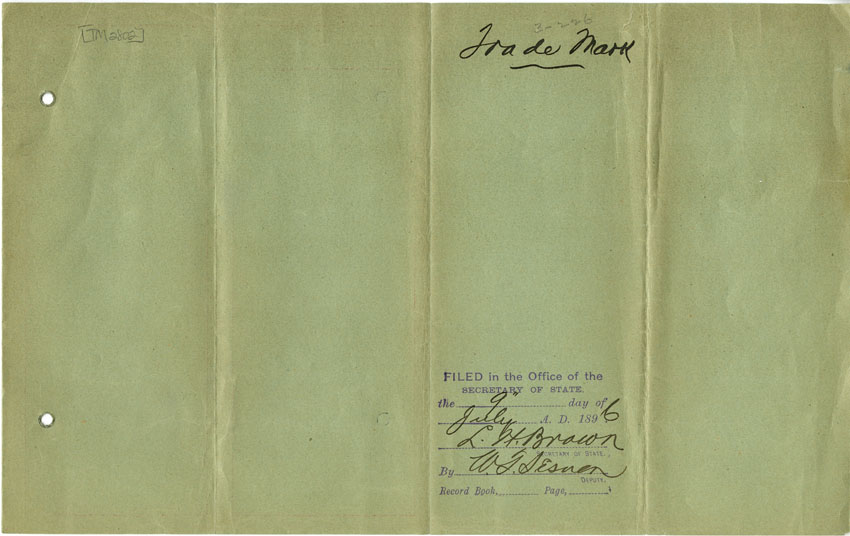 [TM2802]
3-226
Trade Mark
FILED in the Office of the
SECRETARY OF STATE.
the 9" day of
July A. D. 1896
L. H. Brown
SECRETARY OF STATE.
By W. T. Sesnon
DEPUTY.
Record Book, Page,